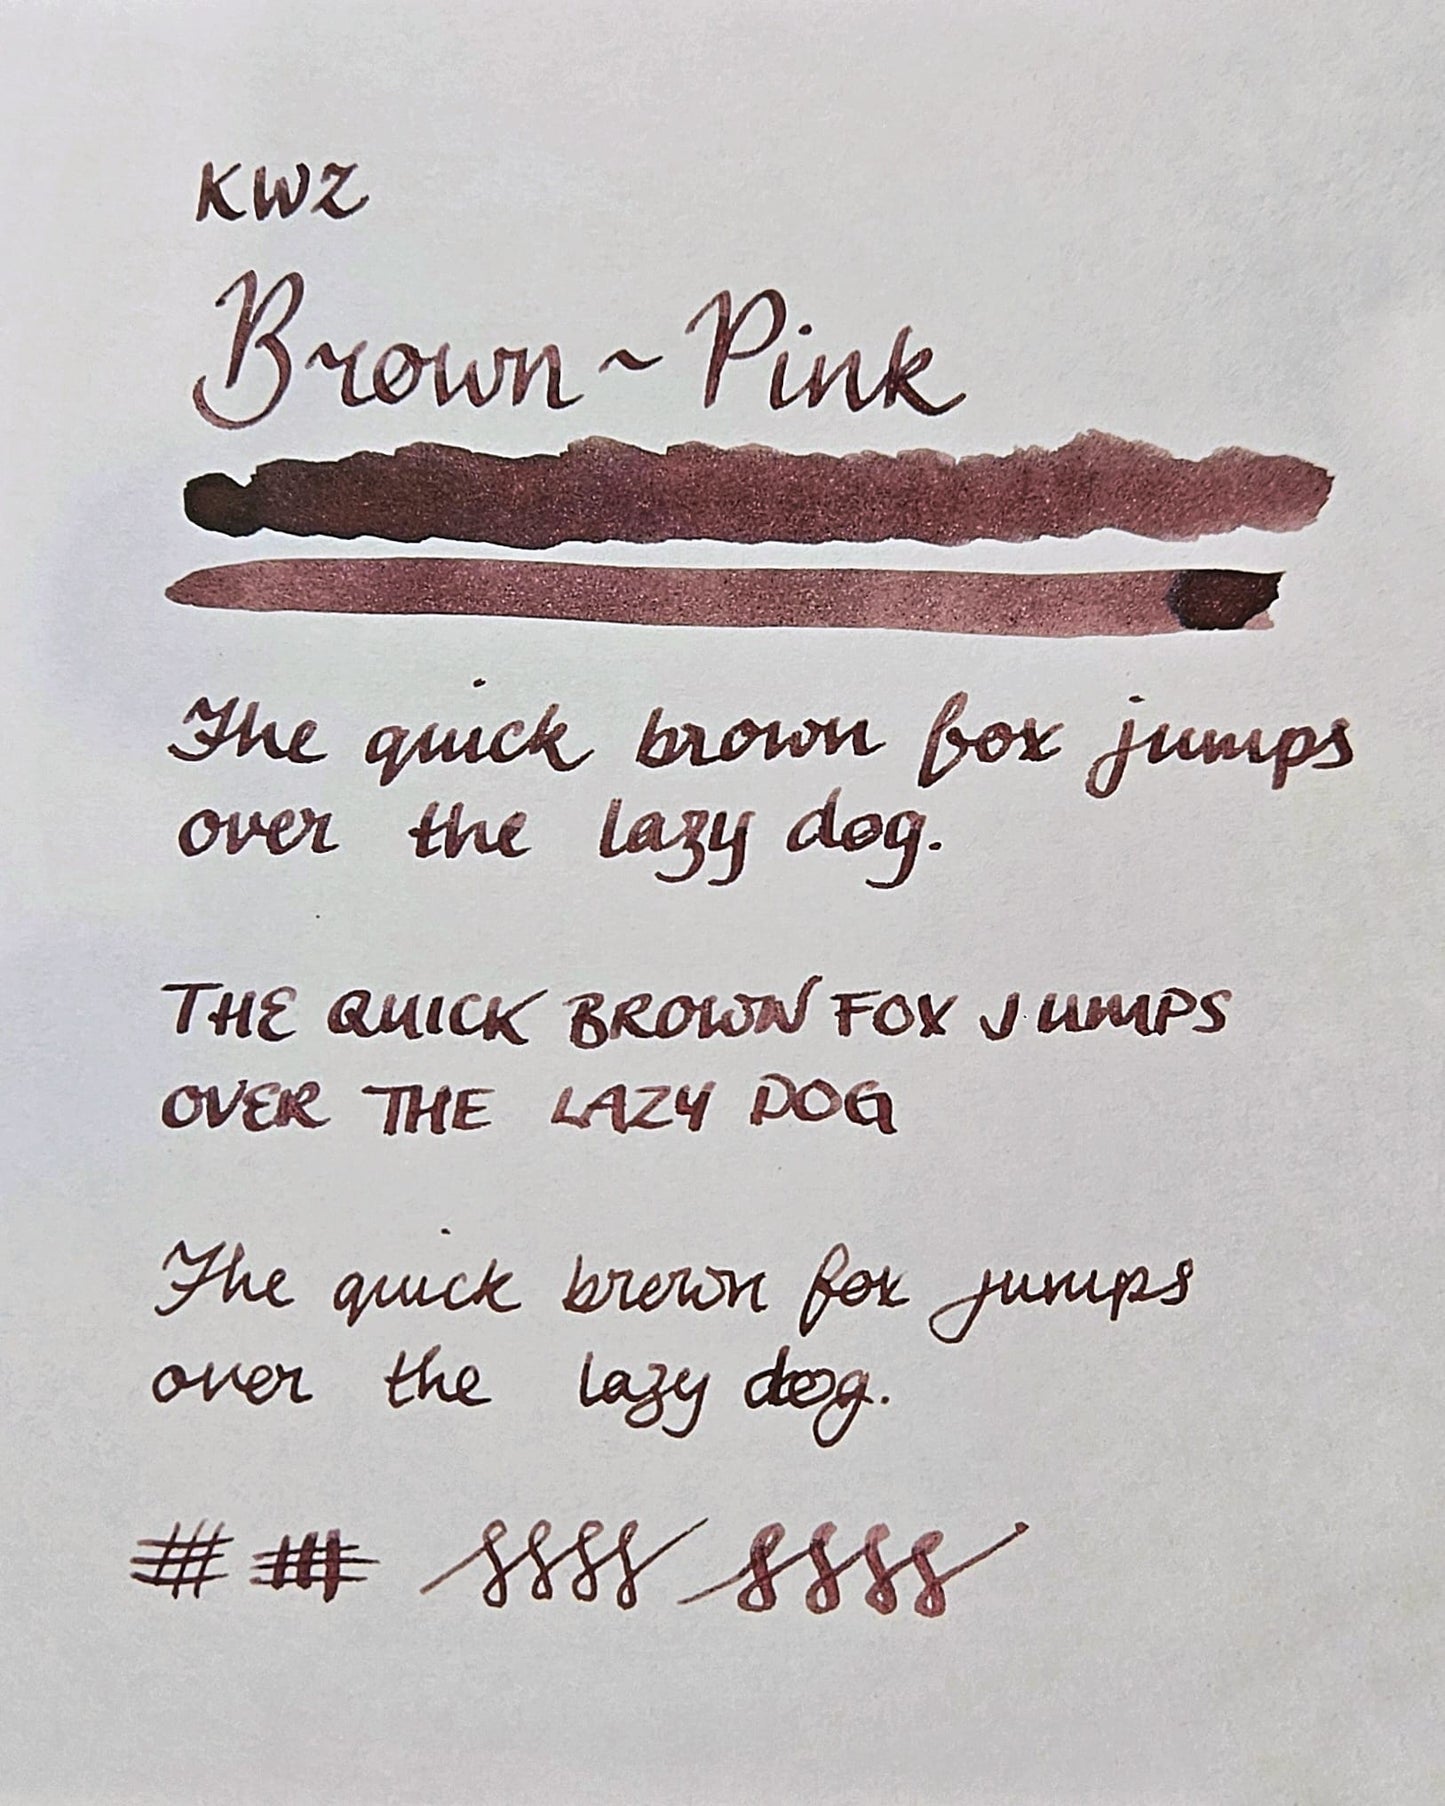 KWZ
Brown~Pink
The quick brown fox jumps
over the lazy dog.
THE QUICK BROWN FOX JUMPS
OVER THE LAZY DOG
The quick brown fox jumps
over the lazy dog.